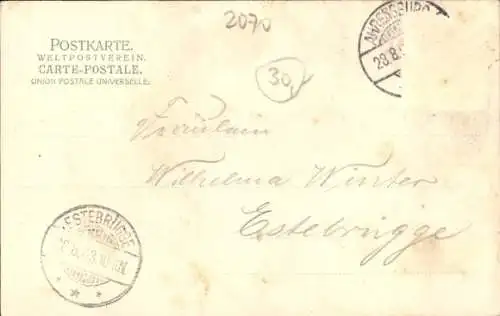 2070
POSTKARTE.
WELTPOSTVEREIN.
CARTE-POSTALE.
UNION POSTALE UNIVERSELLE.
30
28.8.
Fräulein
Wilhelma Winter
Estebrügge
ESTEBRÜGGE